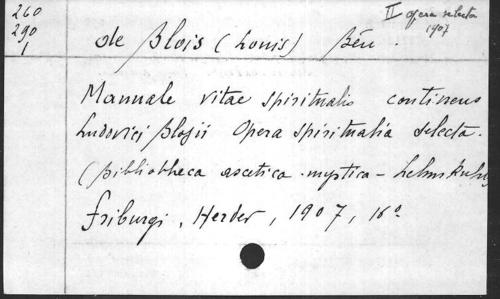 260
290
1
II opera selecta
1907
de Blois (Louis) Bén.
Manuale vitae spiritualis continens
Ludovici Blosii Opera spiritualia selecta.
(Bibliotheca ascetica-mystica - Lehmkuhl
Friburgi, Herder, 1907, 16°